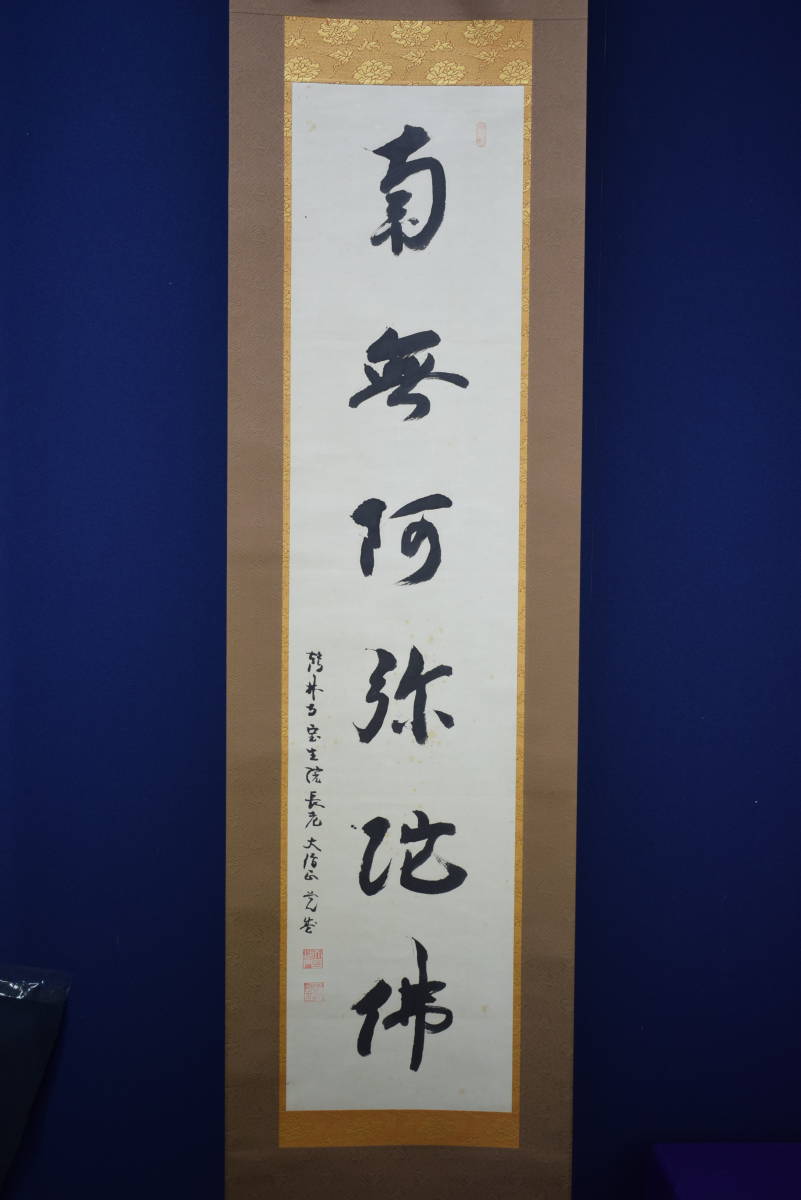 南無阿弥陀佛
鶴林寺宝生院長老大僧正